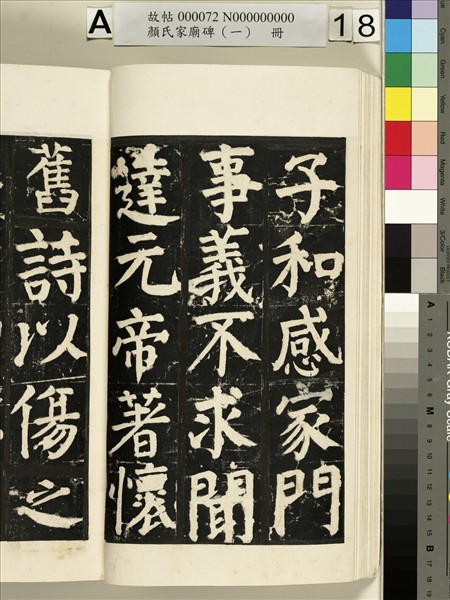 A
故帖 000072 N000000000
顏氏家廟碑（一） 冊
18
子和感家門
事義不求聞
達元帝著懷
舊詩以傷之
Cyan
Green
Yellow
Red
Magenta
White
3/Color
Black
A
1
2
3
4
5
6
M
8
9
10
11
12
13
14
15
B
17
18
19